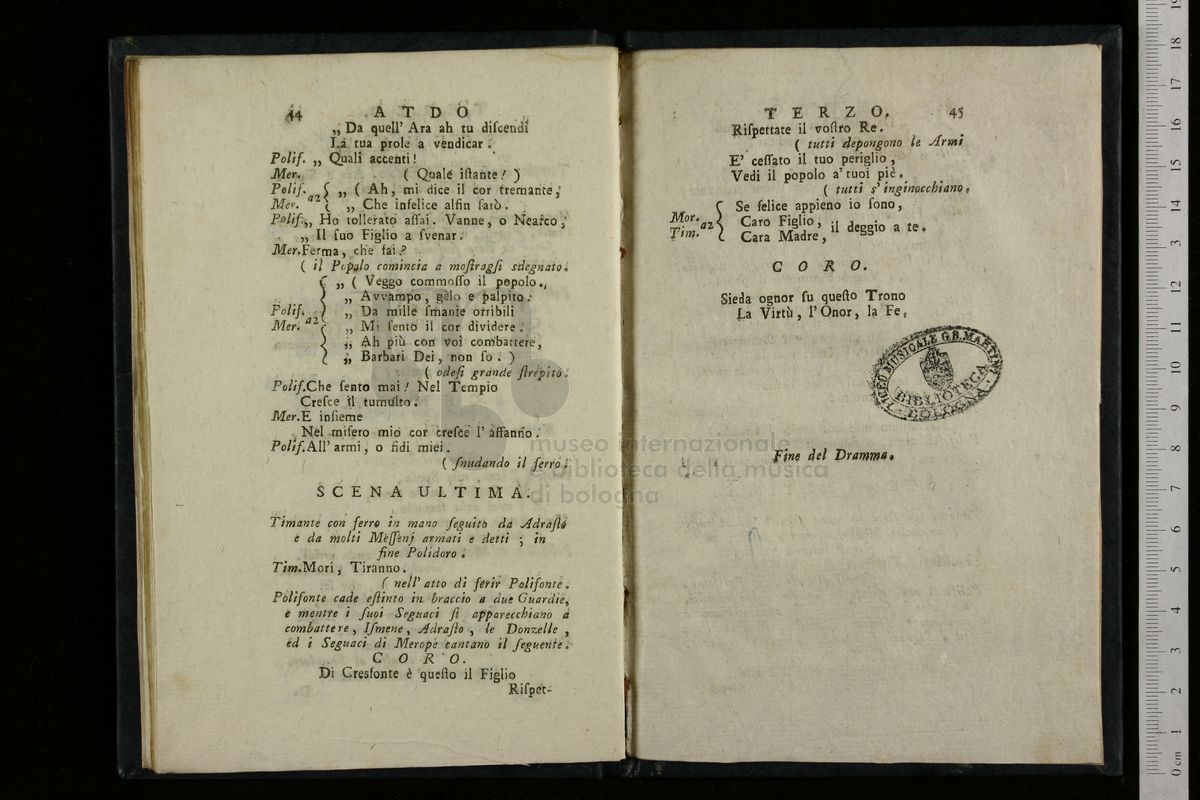 44 ATDO
„ Da quell' Ara ah tu diſcendi
La tua prole a vendicar.
Polif. „ Quali accenti!
Mer. ( Quale iſtante! )
Polif. a2 { „ ( Ah, mi dice il cor tremante,
Mer. { „ Che infelice alfin ſarò.
Polif. „ Ho tollerato aſſai. Vanne, o Nearco,
„ Il ſuo Figlio a ſvenar.
Mer. Ferma, che fai?
( il Popolo comincia a moſtragſi sdegnato.
{ „ ( Veggo commoſſo il popolo.,
„ Avvampo, gelo e palpito:
Polif. a2 „ Da mille ſmanie orribili
Mer. { „ Mi ſento il cor dividere.
„ Ah più con voi combattere,
„ Barbari Dei, non ſo. )
( odeſi grande ſtrepito.
Polif. Che ſento mai! Nel Tempio
Creſce il tumulto.
Mer. E inſieme
Nel miſero mio cor creſce l' affanno.
Polif. All' armi, o fidi miei.
( ſnudando il ferro.
SCENA ULTIMA.
Timante con ferro in mano ſeguito da Adraſto
e da molti Meſſenj armati e detti; in
fine Polidoro.
Tim. Mori, Tiranno.
( nell' atto di ferir Polifonte.
Polifonte cade eſtinto in braccio a due Guardie,
e mentre i ſuoi Seguaci ſi apparecchiano a
combattere, Iſmene, Adraſto, le Donzelle,
ed i Seguaci di Merope cantano il ſeguente.
CORO.
Di Cresfonte è queſto il Figlio
Riſpet-
TERZO. 45
Riſpettate il voſtro Re.
( tutti depongono le Armi
E' ceſſato il tuo periglio,
Vedi il popolo a' tuoi piè.
( tutti s' inginocchiano.
Se felice appieno io ſono,
Mor. a2 { Caro Figlio, il deggio a te.
Tim. Cara Madre,
CORO.
Sieda ognor ſu queſto Trono
La Virtù, l' Onor, la Fe.
LICEO MUSICALE G.B. MARTINI
BIBLIOTECA
BOLOGNA
Fine del Dramma.
museo internazionale
e biblioteca della musica
di bologna
0 cm 1 2 3 4 5 6 7 8 9 10 11 12 13 14 15 16 17 18 19